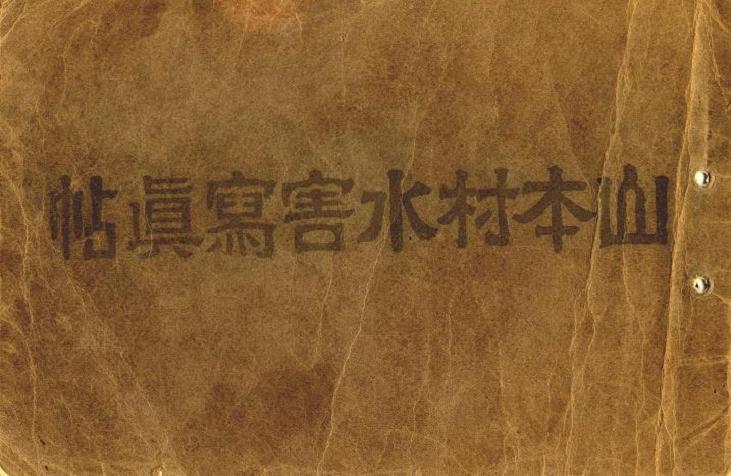 山本村水害寫眞帖